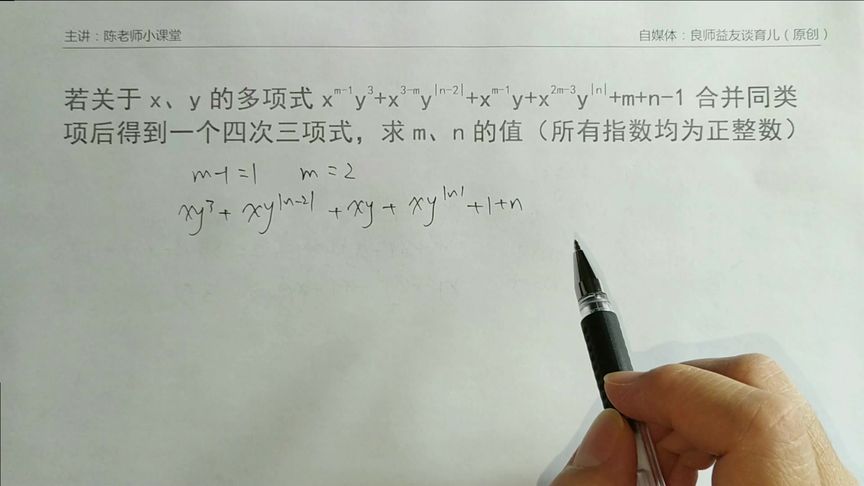 主讲：陈老师小课堂 自媒体：良师益友谈育儿（原创）
若关于 x、y 的多项式 x^{m-1}y^{3}+x^{3-m}y^{|n-2|}+x^{m-1}y+x^{2m-3}y^{|n|}+m+n-1 合并同类
项后得到一个四次三项式，求 m、n 的值（所有指数均为正整数）
m-1=1 m=2
xy^{3}+xy^{|n-2|}+xy+xy^{|n|}+1+n